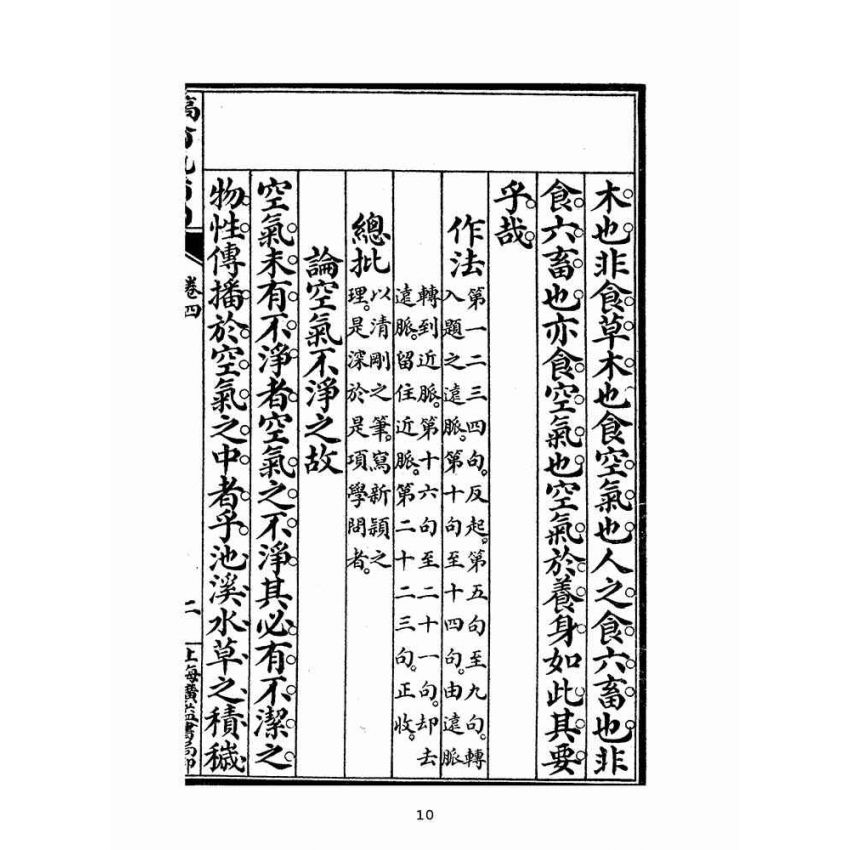 木也非食草木也食空氣也人之食六畜也非
食六畜也亦食空氣也空氣於養身如此其要
乎哉
作法
第一二三四句。反起。第五句至九句。轉
入題之遠脈。第十句至十四句。由遠脈
轉到近脈。第十六句至二十一句。却去
遠脈。留住近脈。第二十二三句。正收。
總批
以清剛之筆。寫新穎之
理。是深於是項學問者。
論空氣不淨之故
空氣未有不淨者空氣之不淨其必有不潔之
物性傳播於空氣之中者乎池溪水草之積穢
卷四
二
上海廣益書局印
10